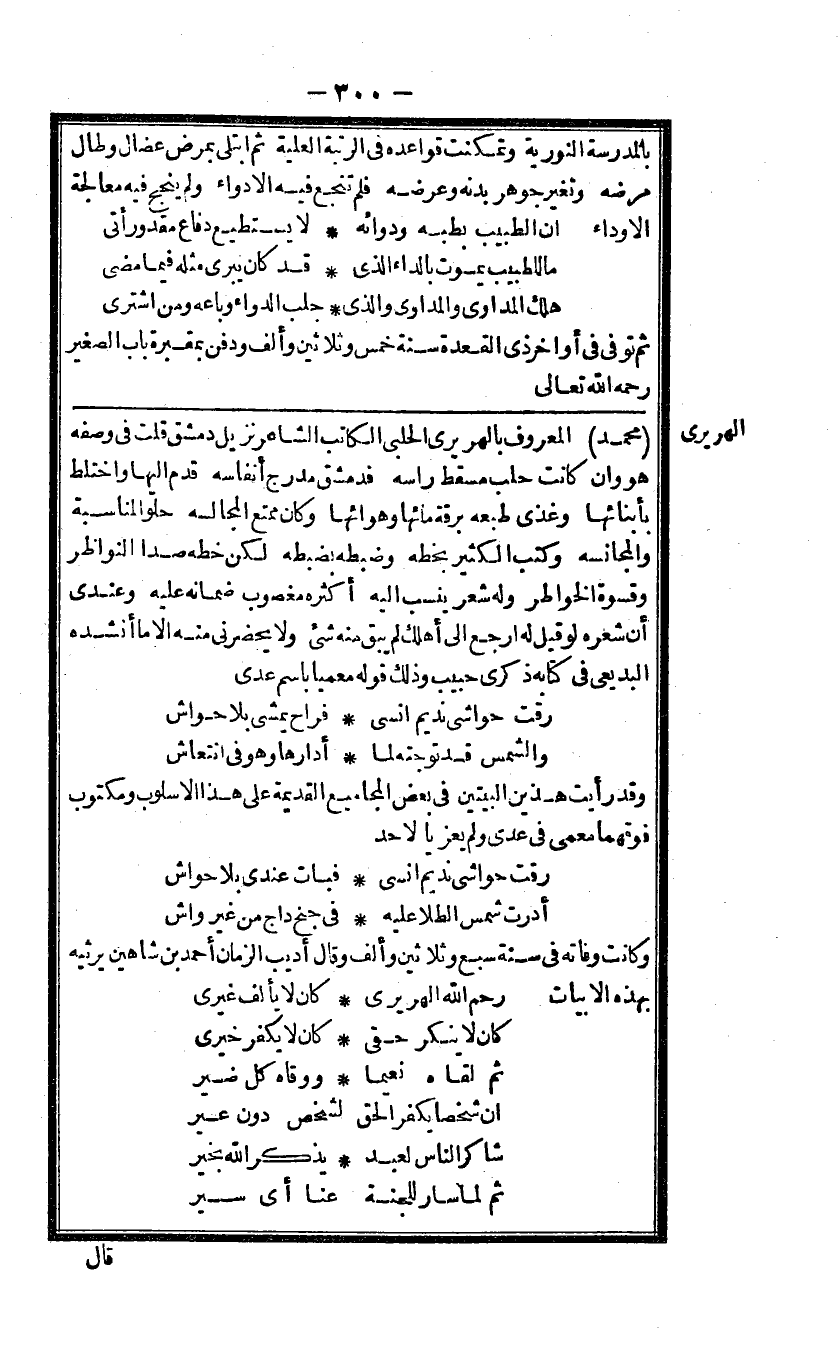 — ٣٠٠ —
بالمدرسة النورية وتمكنت قواعده فى الرتبة العلية ثم ابتلى بمرض عضال وطال
مرضه وتغير جوهر بدنه وعرضه فلم تنجع فيه الادواء ولم ينجح فيه معالجة
الاوداء ان الطبيب بطبه ودوائه * لا يستطيع دفاع مقدور أتى
ما للطبيب يموت بالداء الذى * قد كان يبرى مثله فيما مضى
هلك المداوى والمداوى والذى * جلب الدواء وباعه ومن اشترى
ثم توفى فى أواخر ذى القعدة سنة خمس وثلاثين وألف ودفن بمقبرة باب الصغير
رحمه الله تعالى
الهريرى
(محمد) المعروف بالهريرى الحلبى الكاتب الشاعر نزيل دمشق قلت فى وصفه
هو وان كانت حلب مسقط راسه فدمشق مدرج أنفاسه قدم اليها واختلط
بأبنائها وغذى طبعه برقة مائها وهوائها وكان ممتع المجالسه حلو المناسبة
والمجانسه وكتب الكثير بخطه وضبطه بضبطه لكن خطه صدا النواظر
وقسوة الخواطر وله شعر ينسب اليه أكثره مغصوب ضمانه عليه وعندى
أن شعره لو قيل له ارجع الى أهلك لم يبق منه شئ ولا يحضرنى منه الا ما أنشده
البديعى فى كتابه ذكرى حبيب وذلك قوله معميا باسم عدى
رقت حواشى نديم انسى * فراح يمشى بلا حواش
والشمس قد توجته لما * أدارها وهو فى انتعاش
وقد رأيت هذين البيتين فى بعض المجاميع القديمة على هذا الاسلوب ومكتوب
فوقهما معمى فى عدى ولم يعزيا لاحد
رقت حواشى نديم انسى * فبات عندى بلا حواش
أدرت شمس الطلا عليه * فى جنح داج من غير واش
وكانت وفاته فى سنة سبع وثلاثين وألف وقال أديب الزمان أحمد بن شاهين يرثيه
بهذه الابيات رحم الله الهريرى * كان لا يألف غيرى
كان لا ينكر حقى * كان لا يكفر خيرى
ثم لقاه نعيما * ووقاه كل ضير
ان شخصا يكفر الحق لشخص دون عير
شاكر الناس لعبد * يذكر الله بخير
ثم لما سار للجنة عنا أى سير
قال